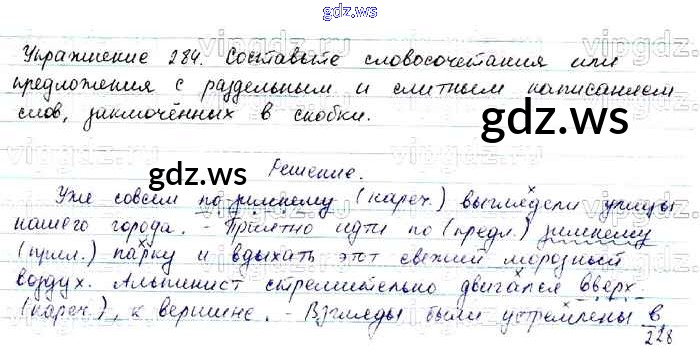 gdz.ws
Упражнение 284. Составьте словосочетания или
предложения с раздельным и слитным написанием
слов, заключённых в скобки.
gdz.ws
gdz.ws
Решение.
Уже совсем по-зимнему (нареч.) выглядели улицы
нашего города. - Приятно идти по (предл.) зимнему
(прил.) парку и вдыхать этот свежий морозный
воздух. Альпинист стремительно двигался вверх
(нареч.), к вершине. - Взгляды были устремлены в
228